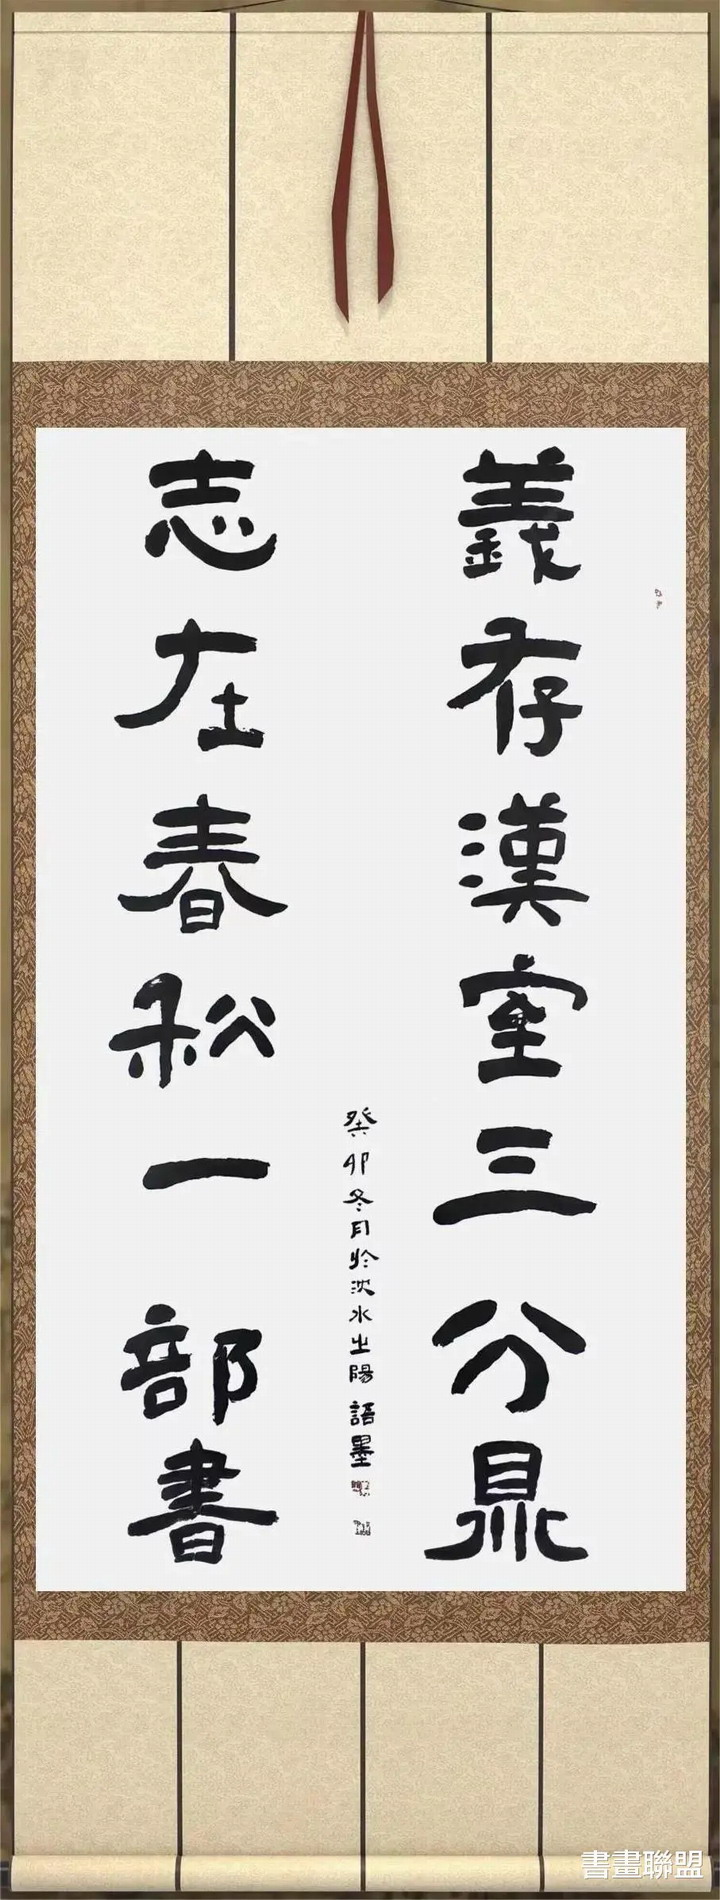 義存漢室三分鼎
志在春秋一部書
癸卯冬月於沈水之陽語墨
書畫聯盟